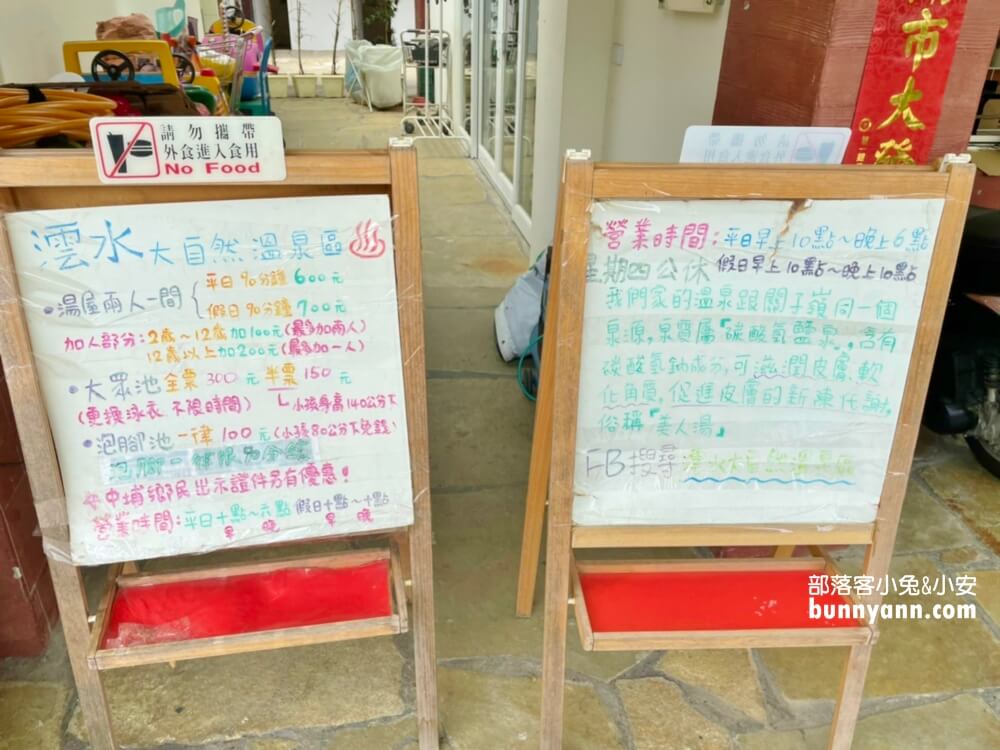 請勿攜帶
外食進入食用
No Food
澐水大自然溫泉區
•湯屋兩人一間
平日90分鐘600元
假日90分鐘700元
加人部分:2歲~12歲加100元(最多加兩人)
12歲以上加200元(最多加一人)
•大眾池全票300元半票150元
(更換泳衣 不限時間)
小孩身高140公分下
•泡腳池一律100元(小孩80公分下免錢)
中埔鄉民出示證件另有優惠!
營業時間:平日十點~六點 假日十點~十點
早 晚 早 晚
營業時間:平日早上10點~晚上6點
星期四公休 假日早上10點~晚上10點
我們家的溫泉跟關子嶺同一個
泉源,泉質屬「碳酸氫鹽泉」,含有
碳酸氫鈉成分,可滋潤皮膚,軟
化角質,促進皮膚的新陳代謝,
俗稱「美人湯」
FB搜尋 澐水大自然溫泉區
市大發
部落客小兔&小安
bunnyann.com